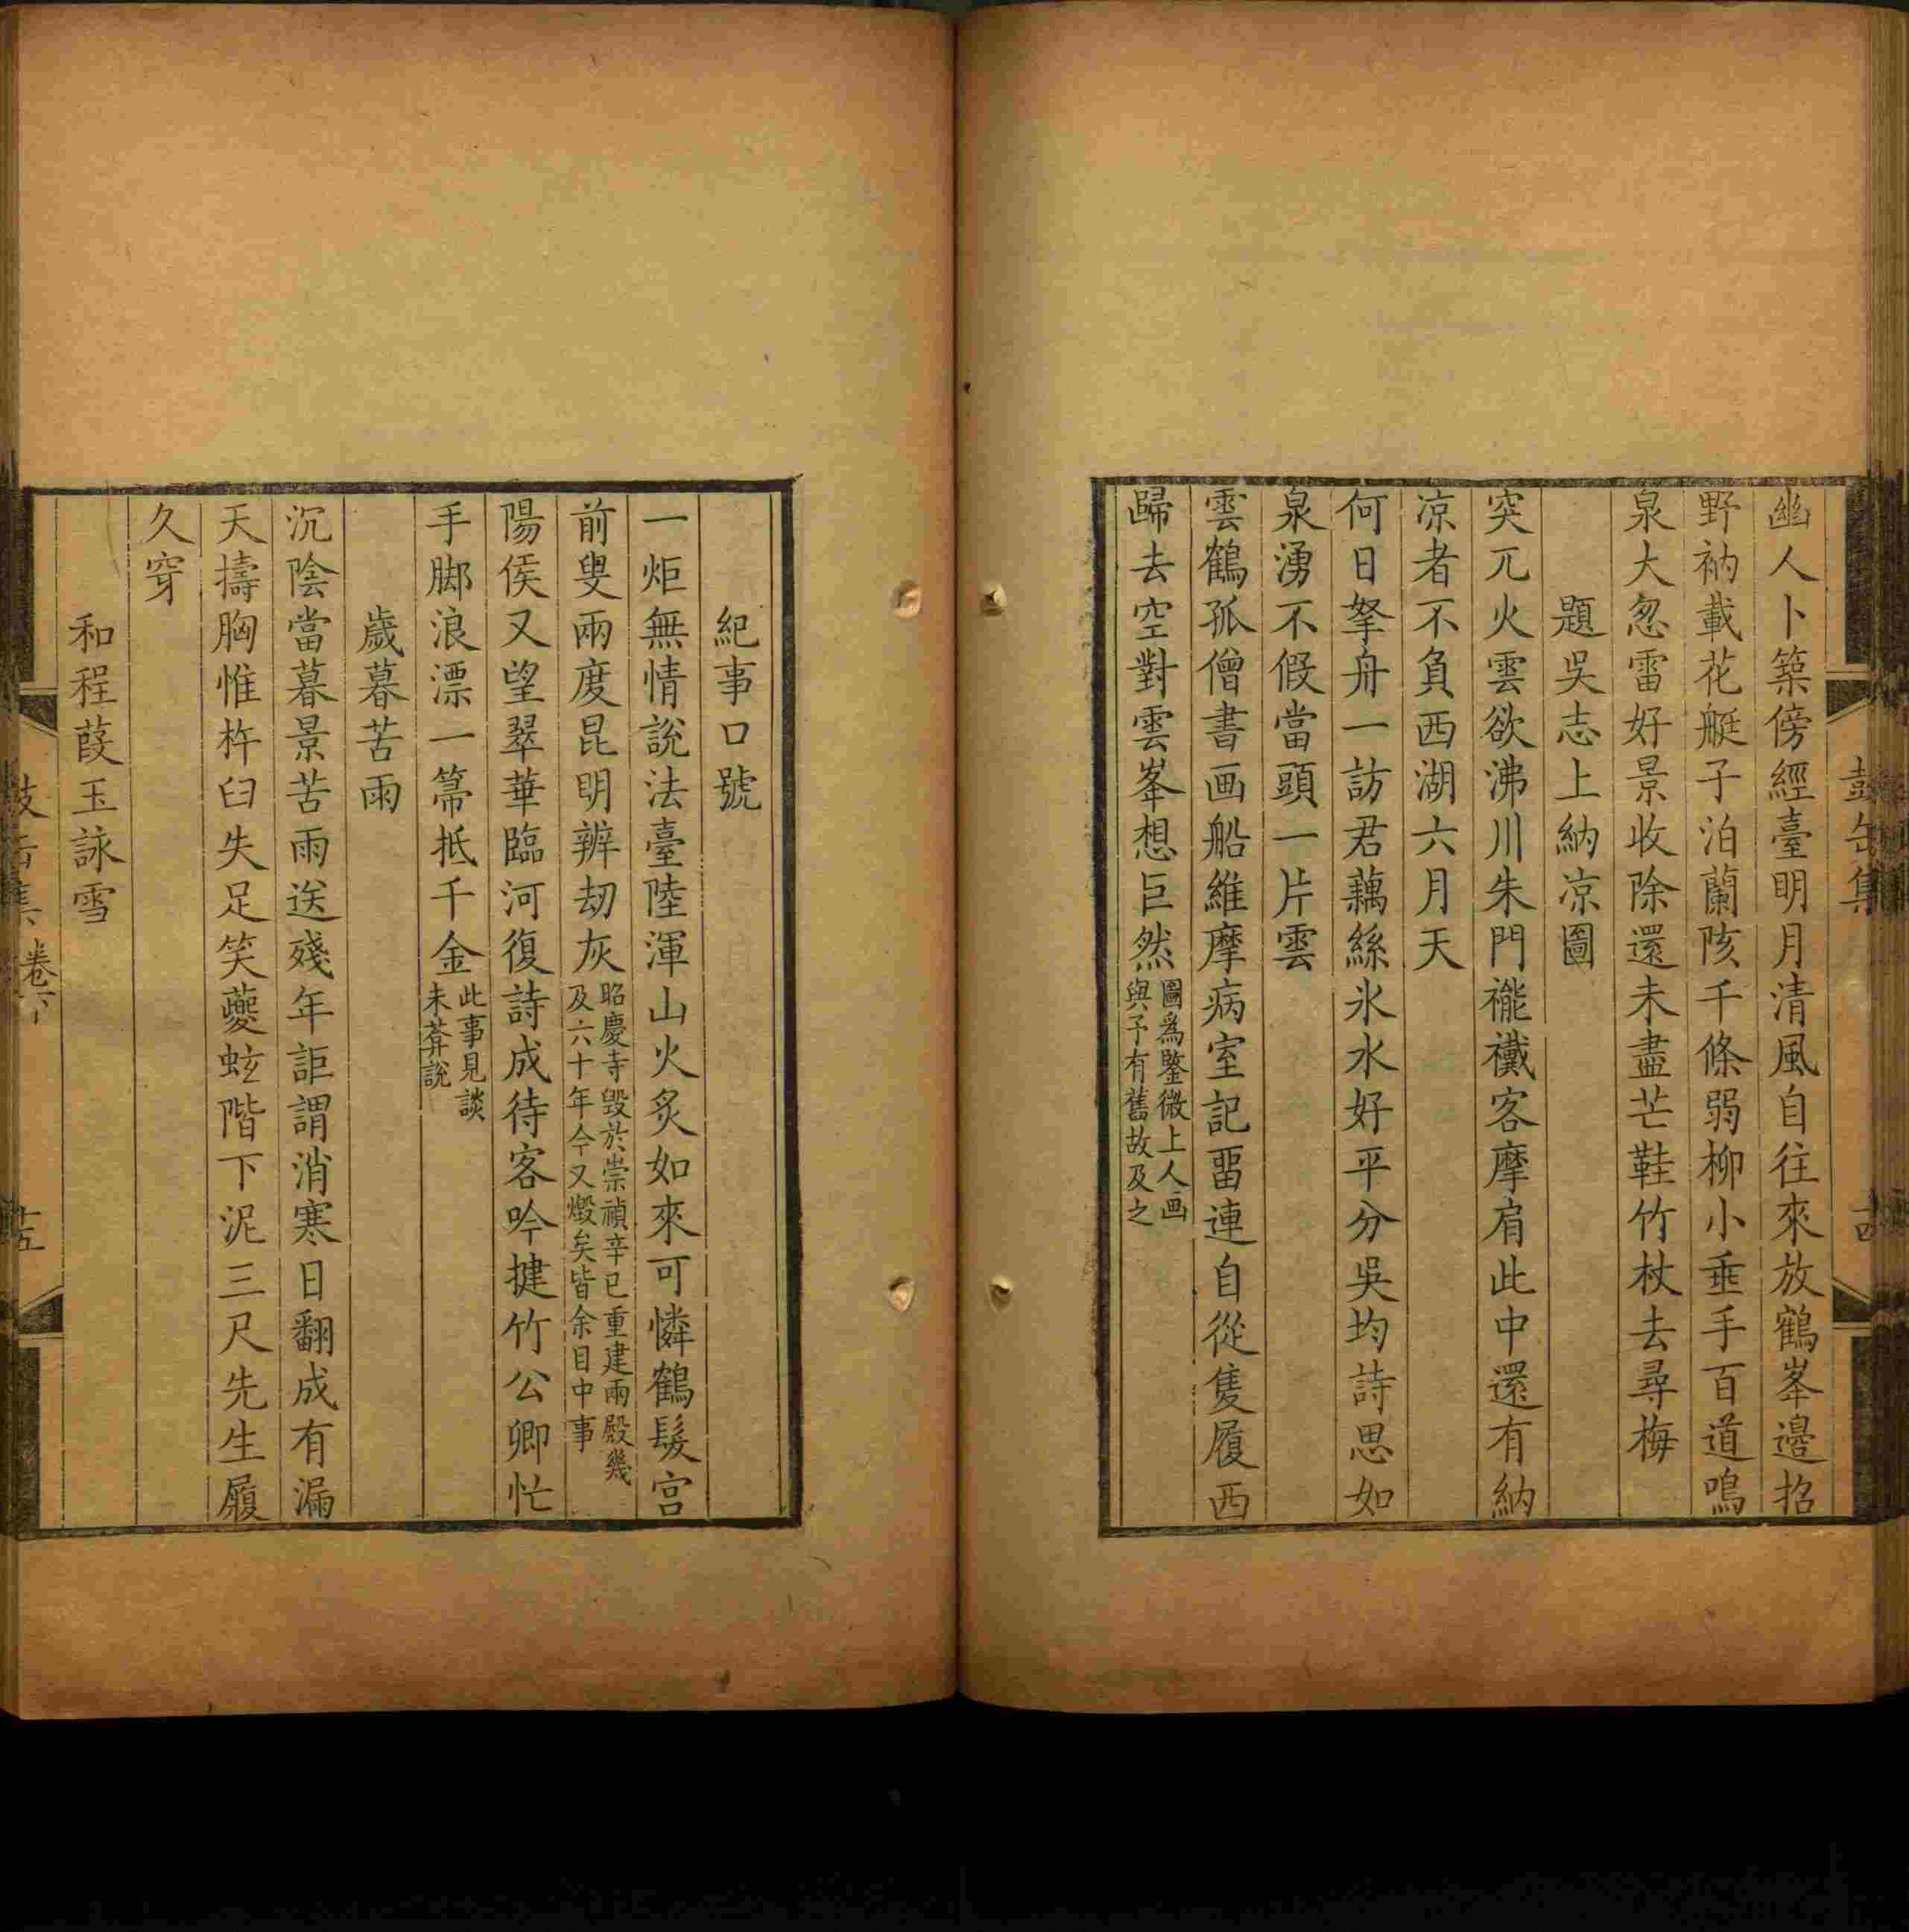 鼓缶集
幽人卜築傍經臺明月清風自往來放鶴峯邊招
野衲載花艇子泊蘭陔千條弱柳小垂手百道鳴
泉大忽雷好景收除還未盡芒鞋竹杖去尋梅
題吳志上納凉圖
突兀火雲欲沸川朱門襹襶客摩肩此中還有納
凉者不負西湖六月天
何日拏舟一訪君藕絲氷水好平分吳均詩思如
泉湧不假當頭一片雲
雲鶴孤僧書画船維摩病室記畱連自從隻履西
歸去空對雲峯想巨然圖爲鑒微上人画
與予有舊故及之
紀事口號
一炬無情說法臺陸渾山火炙如來可憐鶴髮宮
前叟兩度昆明辨刧灰昭慶寺毀於崇禎辛巳重建兩殿幾
及六十年今又燬矣皆余目中事
陽侯又望翠華臨河復詩成待客吟揵竹公卿忙
手脚浪漂一箒抵千金此事見談
未莽說
歲暮苦雨
沉陰當暮景苦雨送殘年詎謂消寒日翻成有漏
天擣胸惟杵臼失足笑夔蚿階下泥三尺先生履
久穿
和程葭玉詠雪
鼓缶集 卷下
十五